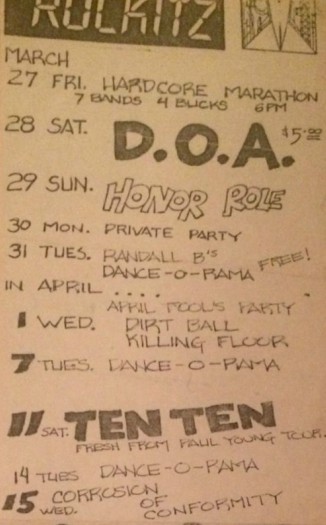 ROCKITZ
MARCH
27 FRI. HARDCORE MARATHON
7 BANDS 4 BUCKS 6PM
28 SAT. D.O.A. $5.00
29 SUN. HONOR ROLE
30 MON. PRIVATE PARTY
31 TUES. RANDALL B'S
DANCE-O-RAMA FREE!
IN APRIL ....
APRIL FOOL'S PARTY
1 WED. DIRT BALL
KILLING FLOOR
7 TUES. DANCE-O-RAMA
11 SAT. TEN TEN
FRESH FROM PAUL YOUNG TOUR.
14 TUES DANCE-O-RAMA
15 WED. CORROSION
OF
CONFORMITY